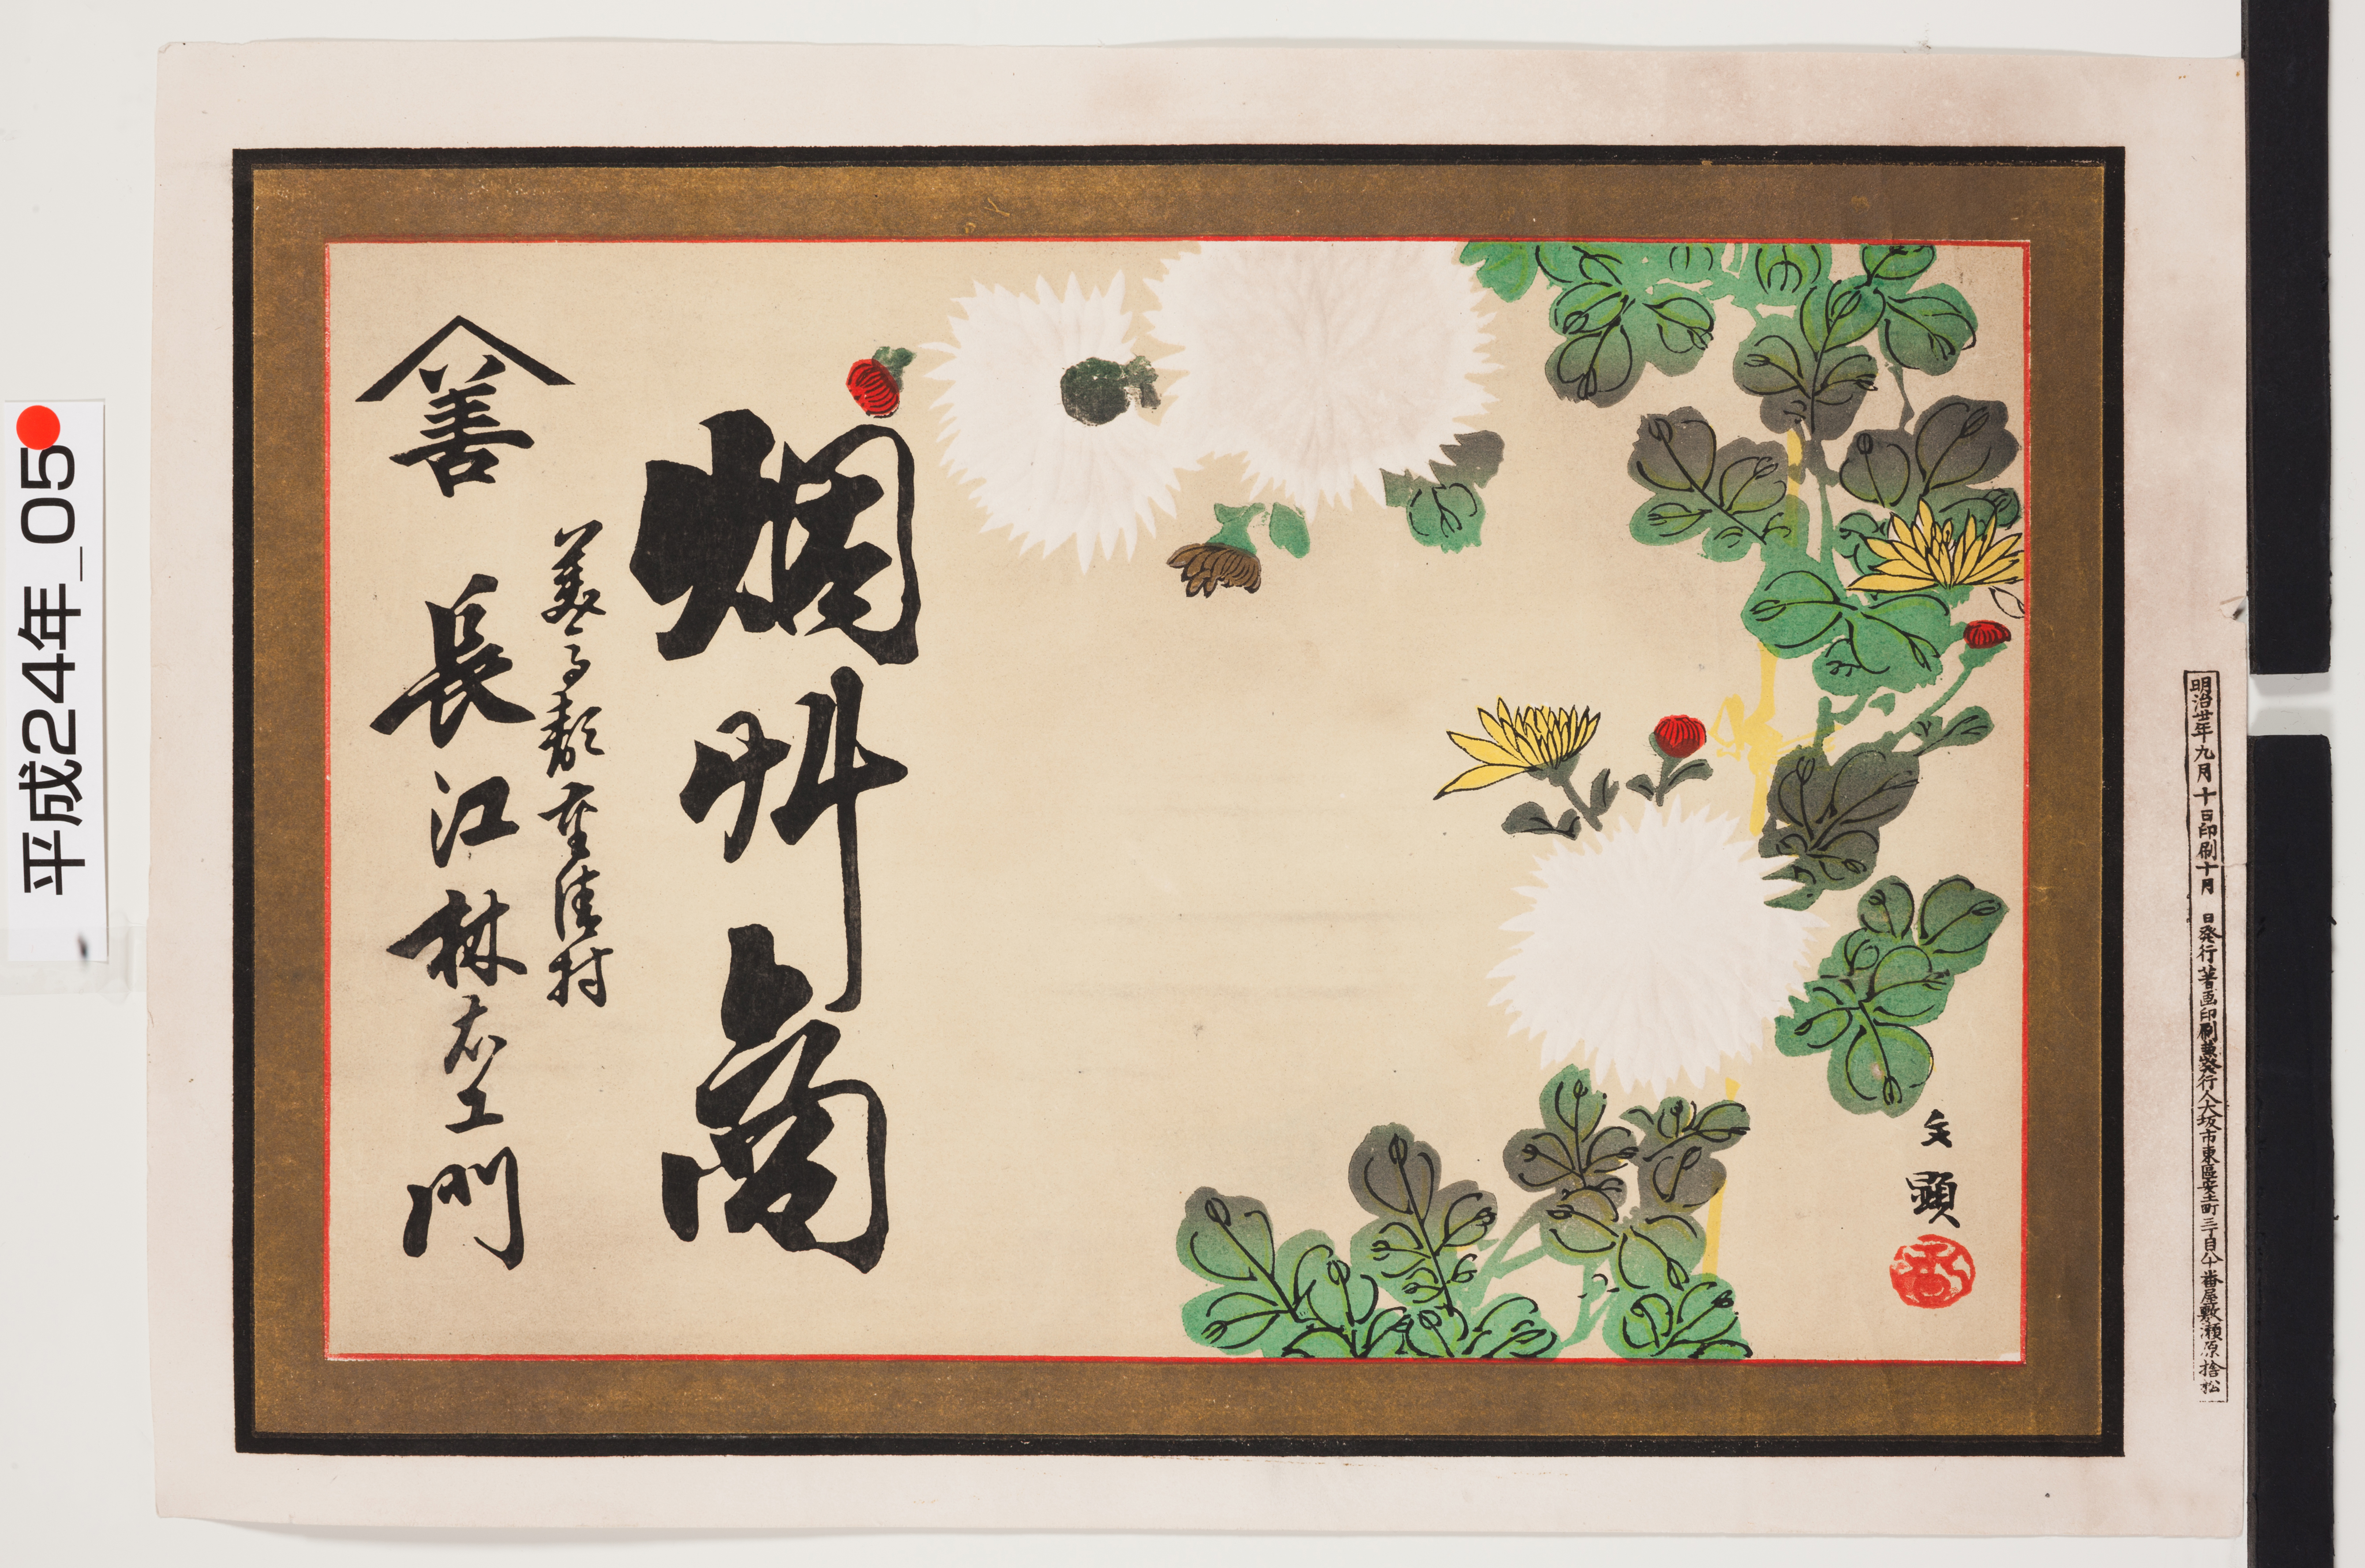 明治卅年九月十日印刷十月 日発行著画印刷兼発行人大坂市東區安土町三丁目八十番屋敷瀬原捨松
文顕
烟艸商
善
長江林右エ門
平成24年_05